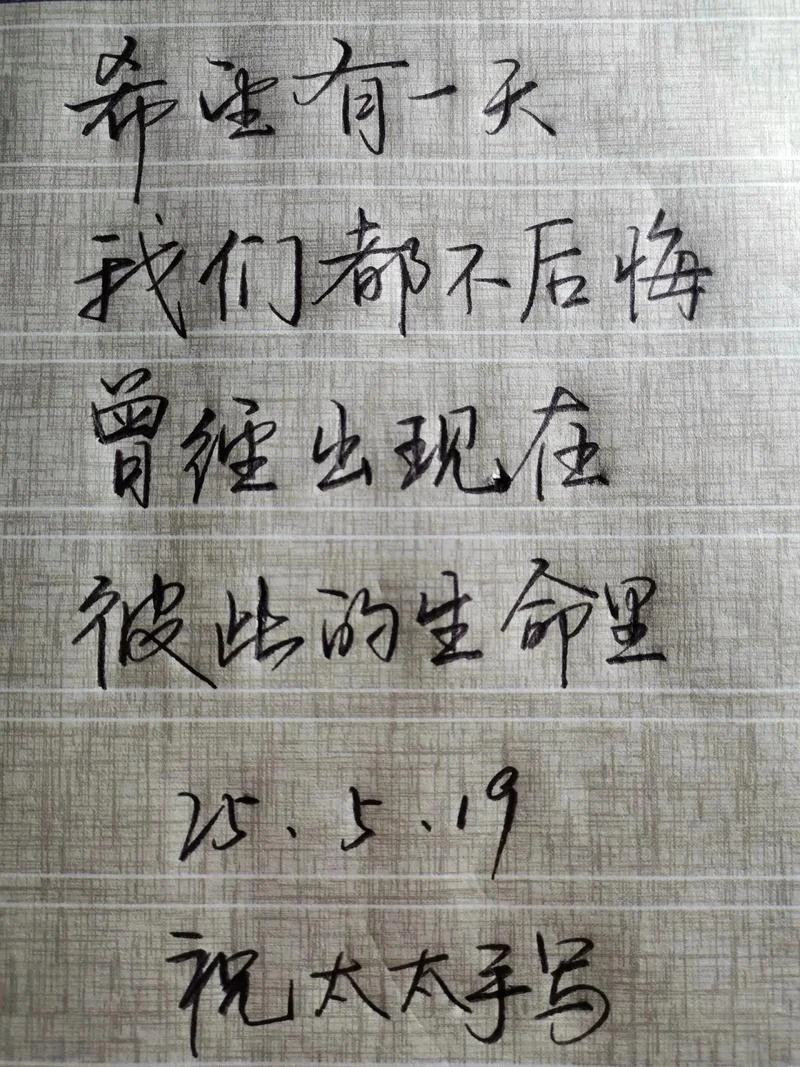 希望有一天
我们都不后悔
曾经出现在
彼此的生命里
25.5.19
祝太太手写